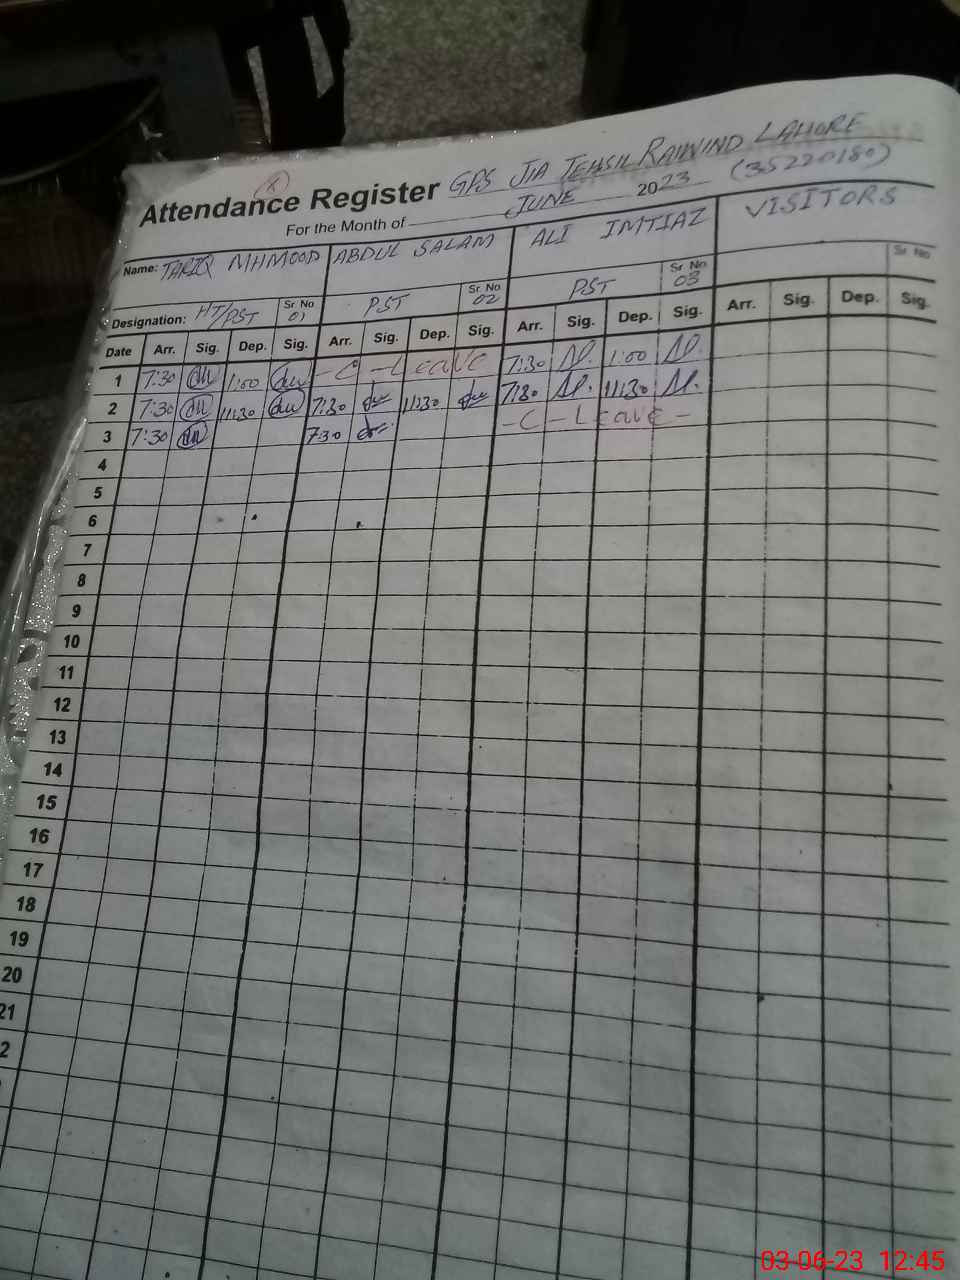 Attendance Register GPS JIA TEHSIL RAIWIND LAHORE
For the Month of JUNE 2023 (35220180)
Name: TARIQ MHMOOD ABDUL SALAM ALI IMTIAZ VISITORS
Designation: HT/PST Sr No 01 PST Sr No 02 PST Sr No 03 Sr No
Date Arr. Sig. Dep. Sig. Arr. Sig. Dep. Sig. Arr. Sig. Dep. Sig. Arr. Sig. Dep. Sig.
1 7:30 1:00 -C-Leave 7:30 1:00
2 7:30 11:30 7:30 11:30 7:30 11:30
3 7:30 7:30 -C-Leave-
4
5
6
7
8
9
10
11
12
13
14
15
16
17
18
19
20
21
2
03-06-23 12:45